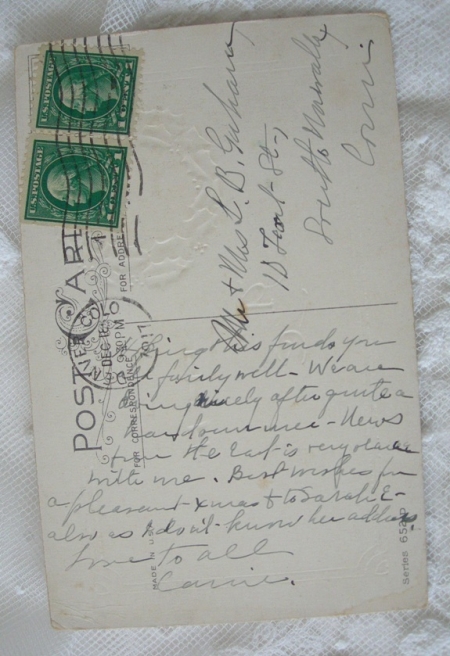 U.S. POSTAGE
1 CENT 1
U.S. POSTAGE
1 CENT 1
POST CARD
FOR ADDRESS
FOR CORRESPONDENCE
DEC 18
PM
1917
Mr + Mrs C. B. Graham
10 St.,
South Norwalk
Conn
Hoping this finds you
+ family well - We are
nicely after quite a
hard summer - News
from the East is very
with me. Best wishes for
a pleasant xmas + to Sarah E-
also as I don't know her address
Love to all
Carrie.
MADE IN U.S.A.
Series 652